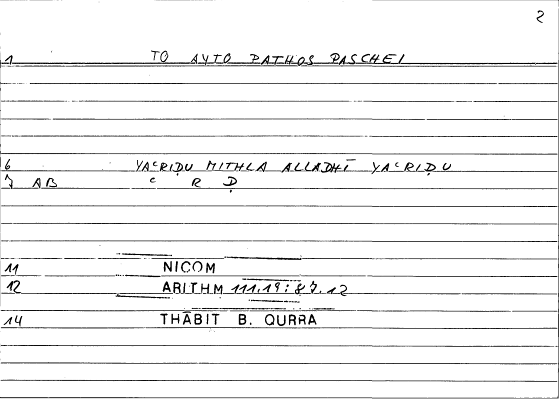 2
1 TO AYTO PATHOS PASCHEI
6 YAᶜRIḌU MITHLA ALLADHĪ YAᶜRIḌU
7 AB ᶜ R Ḍ
11 NICOM
12 ARITHM 111.19:87.12
14 THĀBIT B. QURRA